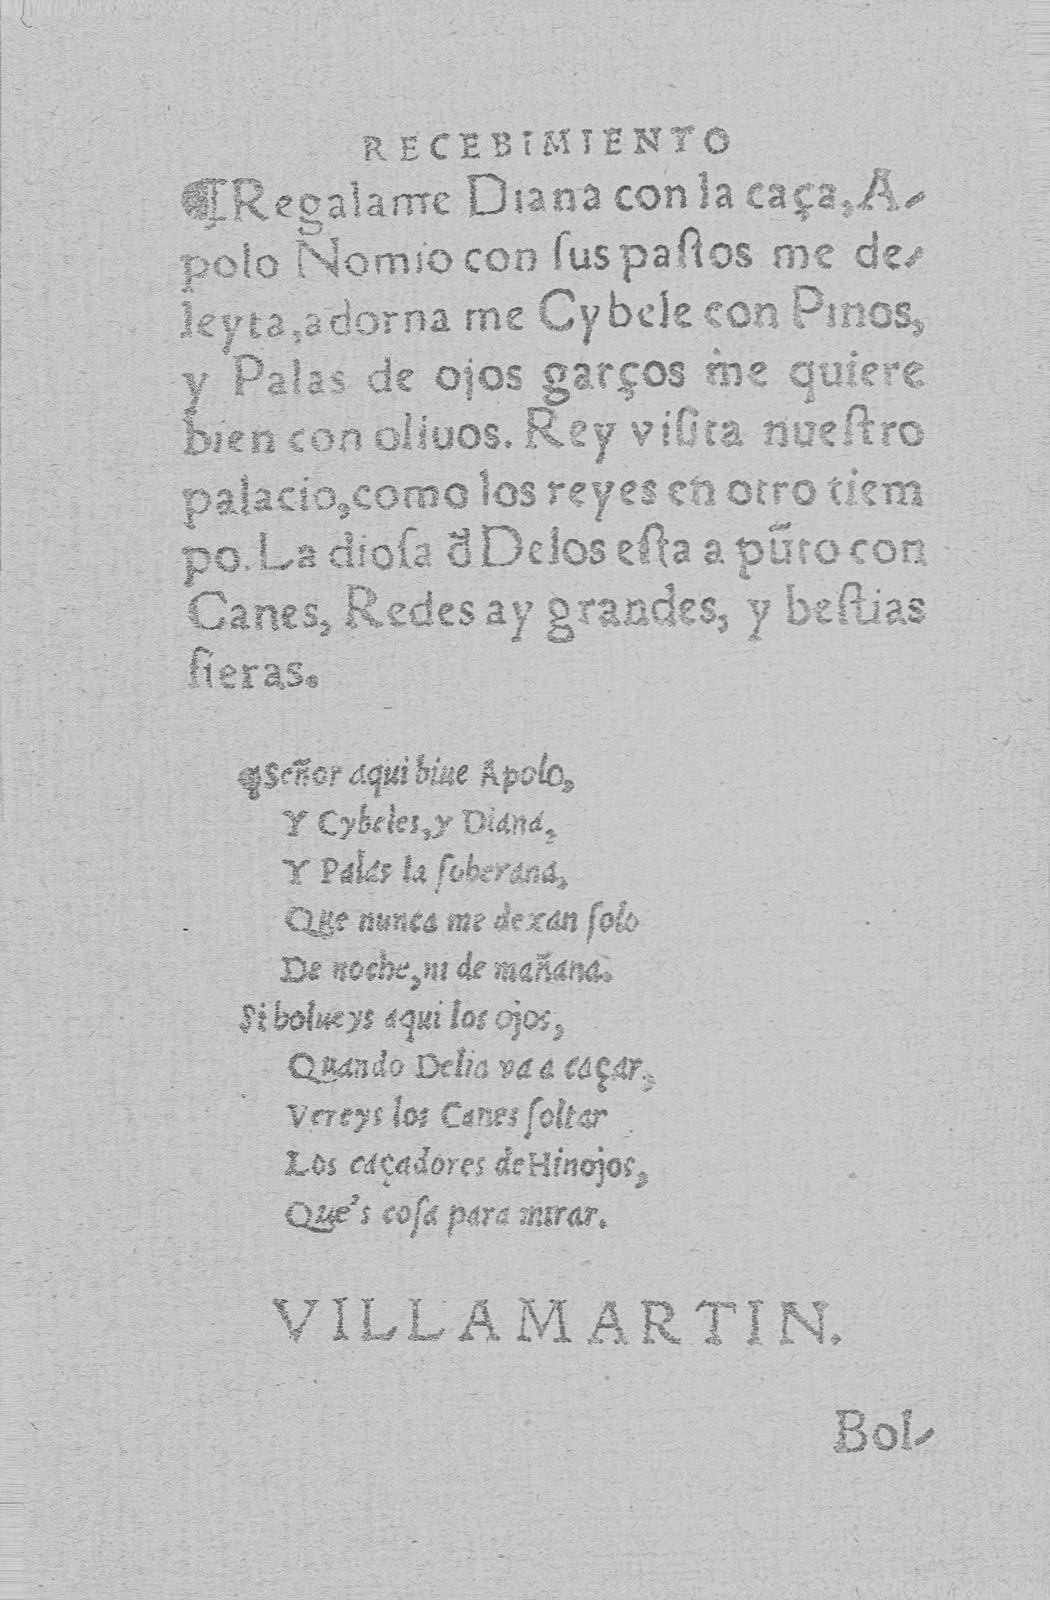 RECEBIMIENTO
¶Regalame Diana con la caça, A-
polo Nomio con ſus paſtos me de-
leyta, adorna me Cybele con Pinos,
y Palas de ojos garços me quiere
bien con oliuos. Rey viſita nueſtro
palacio, como los reyes en otro tiem
po. La dioſa d̃ Delos eſta a pũto con
Canes, Redes ay grandes, y beſtias
fieras.
¶Señor aqui biue Apolo,
Y Cybeles, y Diana,
Y Palas la ſoberana,
Que nunca me dexan ſolo
De noche, ni de mañana.
Si bolueys aqui los ojos,
Quando Delia va a caçar,
Vereys los Canes ſoltar
Los caçadores de Hinojos,
Que's coſa para mirar.
VILLAMARTIN.
Bol-